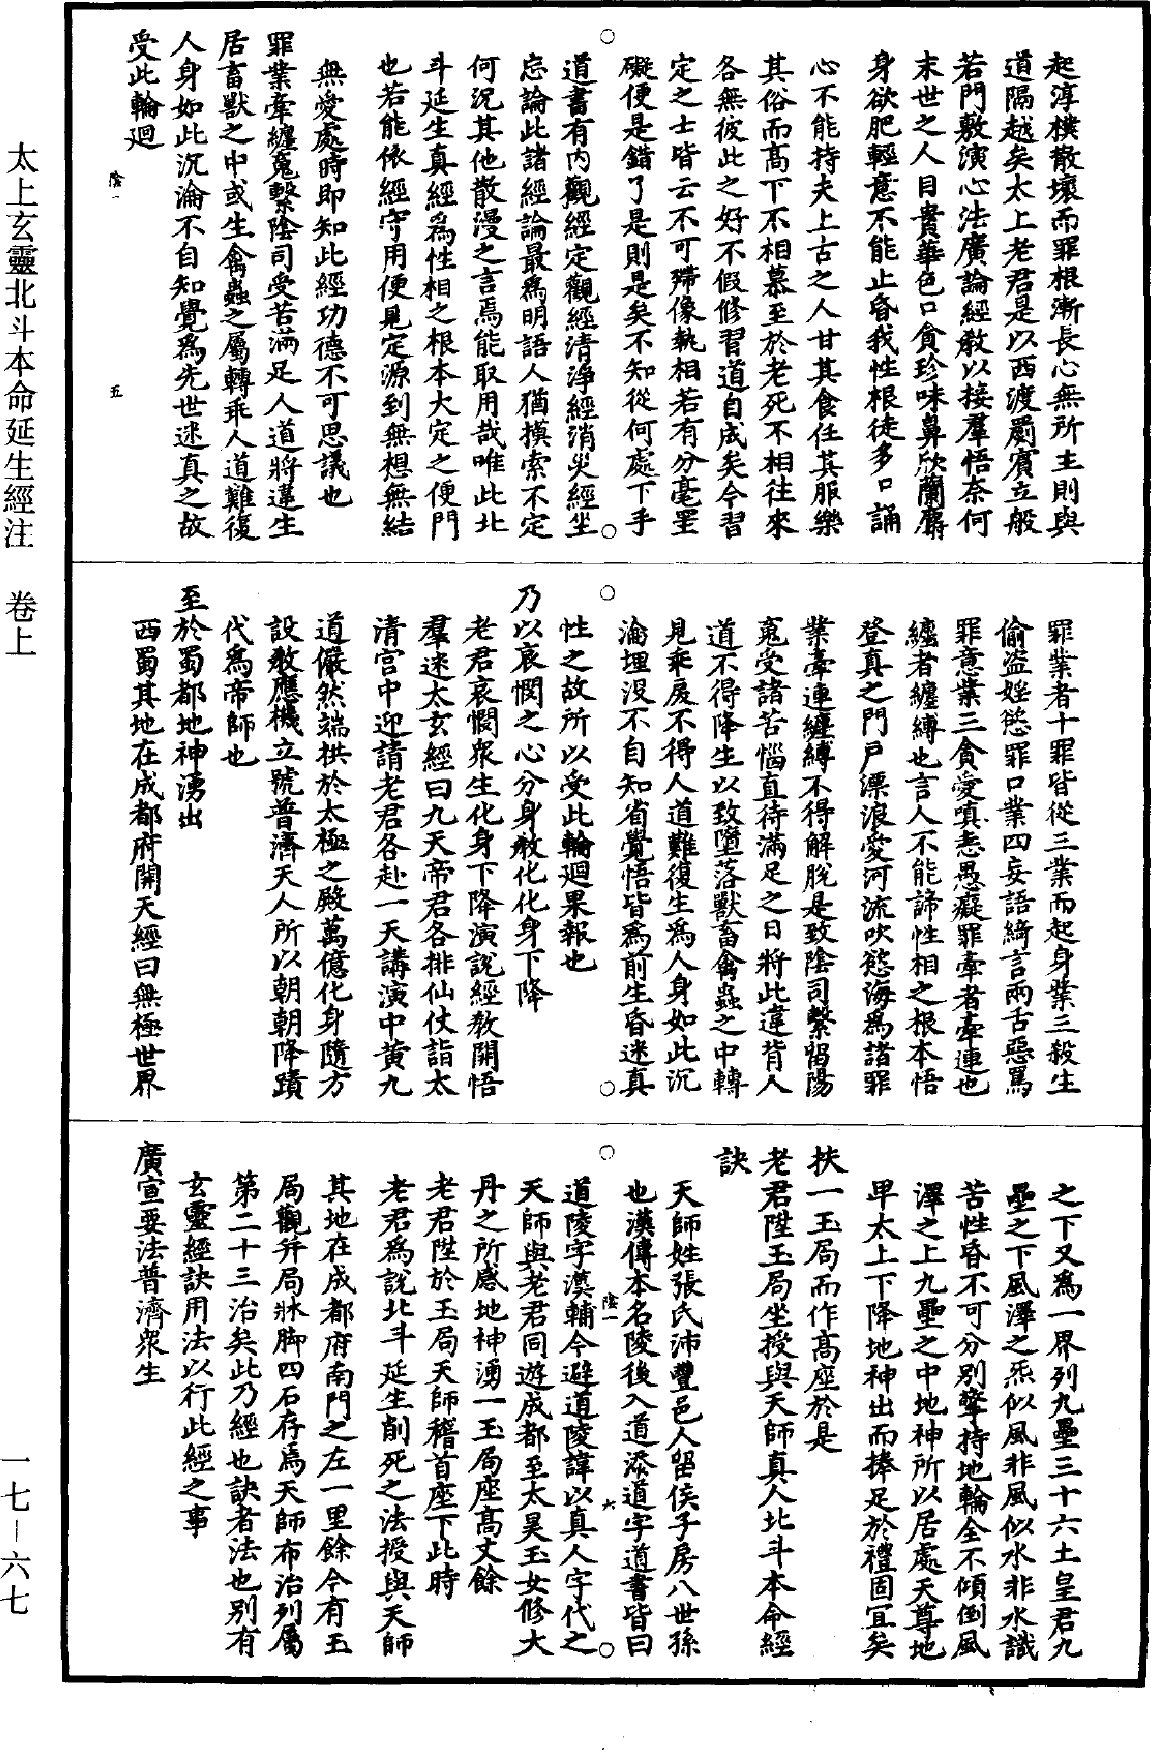 起淳樸散壞而罪根漸長心無所主則與
道隔越矣太上老君是以西渡罽賓立般
若門敷演心法廣論經教以接羣悟奈何
末世之人目貴華色口貪珍味鼻欣蘭麝
身欲肥輕意不能止昏我性根徒多口誦
心不能持夫上古之人甘其食任其服樂
其俗而高下不相慕至於老死不相往來
各無彼此之好不假修習道自成矣今習
定之士皆云不可滯像執相若有分毫罣
礙便是錯了是則是矣不知從何處下手
道書有內觀經定觀經清淨經消災經坐
忘論此諸經論最為明語人猶摸索不定
何況其他散漫之言焉能取用哉唯此北
斗延生真經為性相之根本大定之便門
也若能依經守用便見定源到無想無結
無愛處時即知此經功德不可思議也
罪業牽纏魂繫陰司受苦滿足人道將違生
居畜獸之中或生禽蟲之屬轉乖人道難復
人身如此沉淪不自知覺為先世迷真之故
受此輪迴
陰一 五
罪業者十罪皆從三業而起身業三殺生
偷盜婬慾罪口業四妄語綺言兩舌惡罵
罪意業三貪愛嗔恚愚癡罪牽者牽連也
纏者纏縛也言人不能諦性相之根本悟
登真之門戶漂浪愛河流吹慾海為諸罪
業牽連纏縛不得解脫是致陰司繫留陽
魂受諸苦惱直待滿足之日將此違背人
道不得降生以致墮落獸畜禽蟲之中轉
見乘戾不得人道難復生為人身如此沉
淪埋沒不自知省覺悟皆為前生昏迷真
性之故所以受此輪迴果報也
乃以哀憫之心分身教化化身下降
老君哀憫眾生化身下降演說經教開悟
羣迷太玄經曰九天帝君各排仙仗詣太
清宮中迎請老君各赴一天講演中黃九
道儼然端拱於太極之殿萬億化身隨方
設教應機立號普濟天人所以朝朝降蹟
代為帝師也
至於蜀都地神湧出
西蜀其地在成都府開天經曰無極世界
之下又為一界列九壘三十六土皇君九
壘之下風澤之炁似風非風似水非水識
苦性昏不可分別擎持地輪全不傾倒風
澤之上九壘之中地神所以居處天尊地
卑太上下降地神出而捧足於禮固宜矣
扶一玉局而作高座於是
老君陞玉局坐授與天師真人北斗本命經
訣
天師姓張氏沛豐邑人留侯子房八世孫
也漢傳本名陵後入道添道字道書皆曰
陰一 六
道陵字漢輔今避道陵諱以真人字代之
天師與老君同遊成都至太昊玉女修大
丹之所感地神湧一玉局座高丈餘
老君陞於玉局天師稽首座下此時
老君為說北斗延生削死之法授與天師
其地在成都府南門之左一里餘今有玉
局觀并局牀腳四石存為天師布治列屬
第二十三治矣此乃經也訣者法也別有
玄靈經訣用法以行此經之事
廣宣要法普濟眾生
太上玄靈北斗本命延生經注 卷上
一七—六七